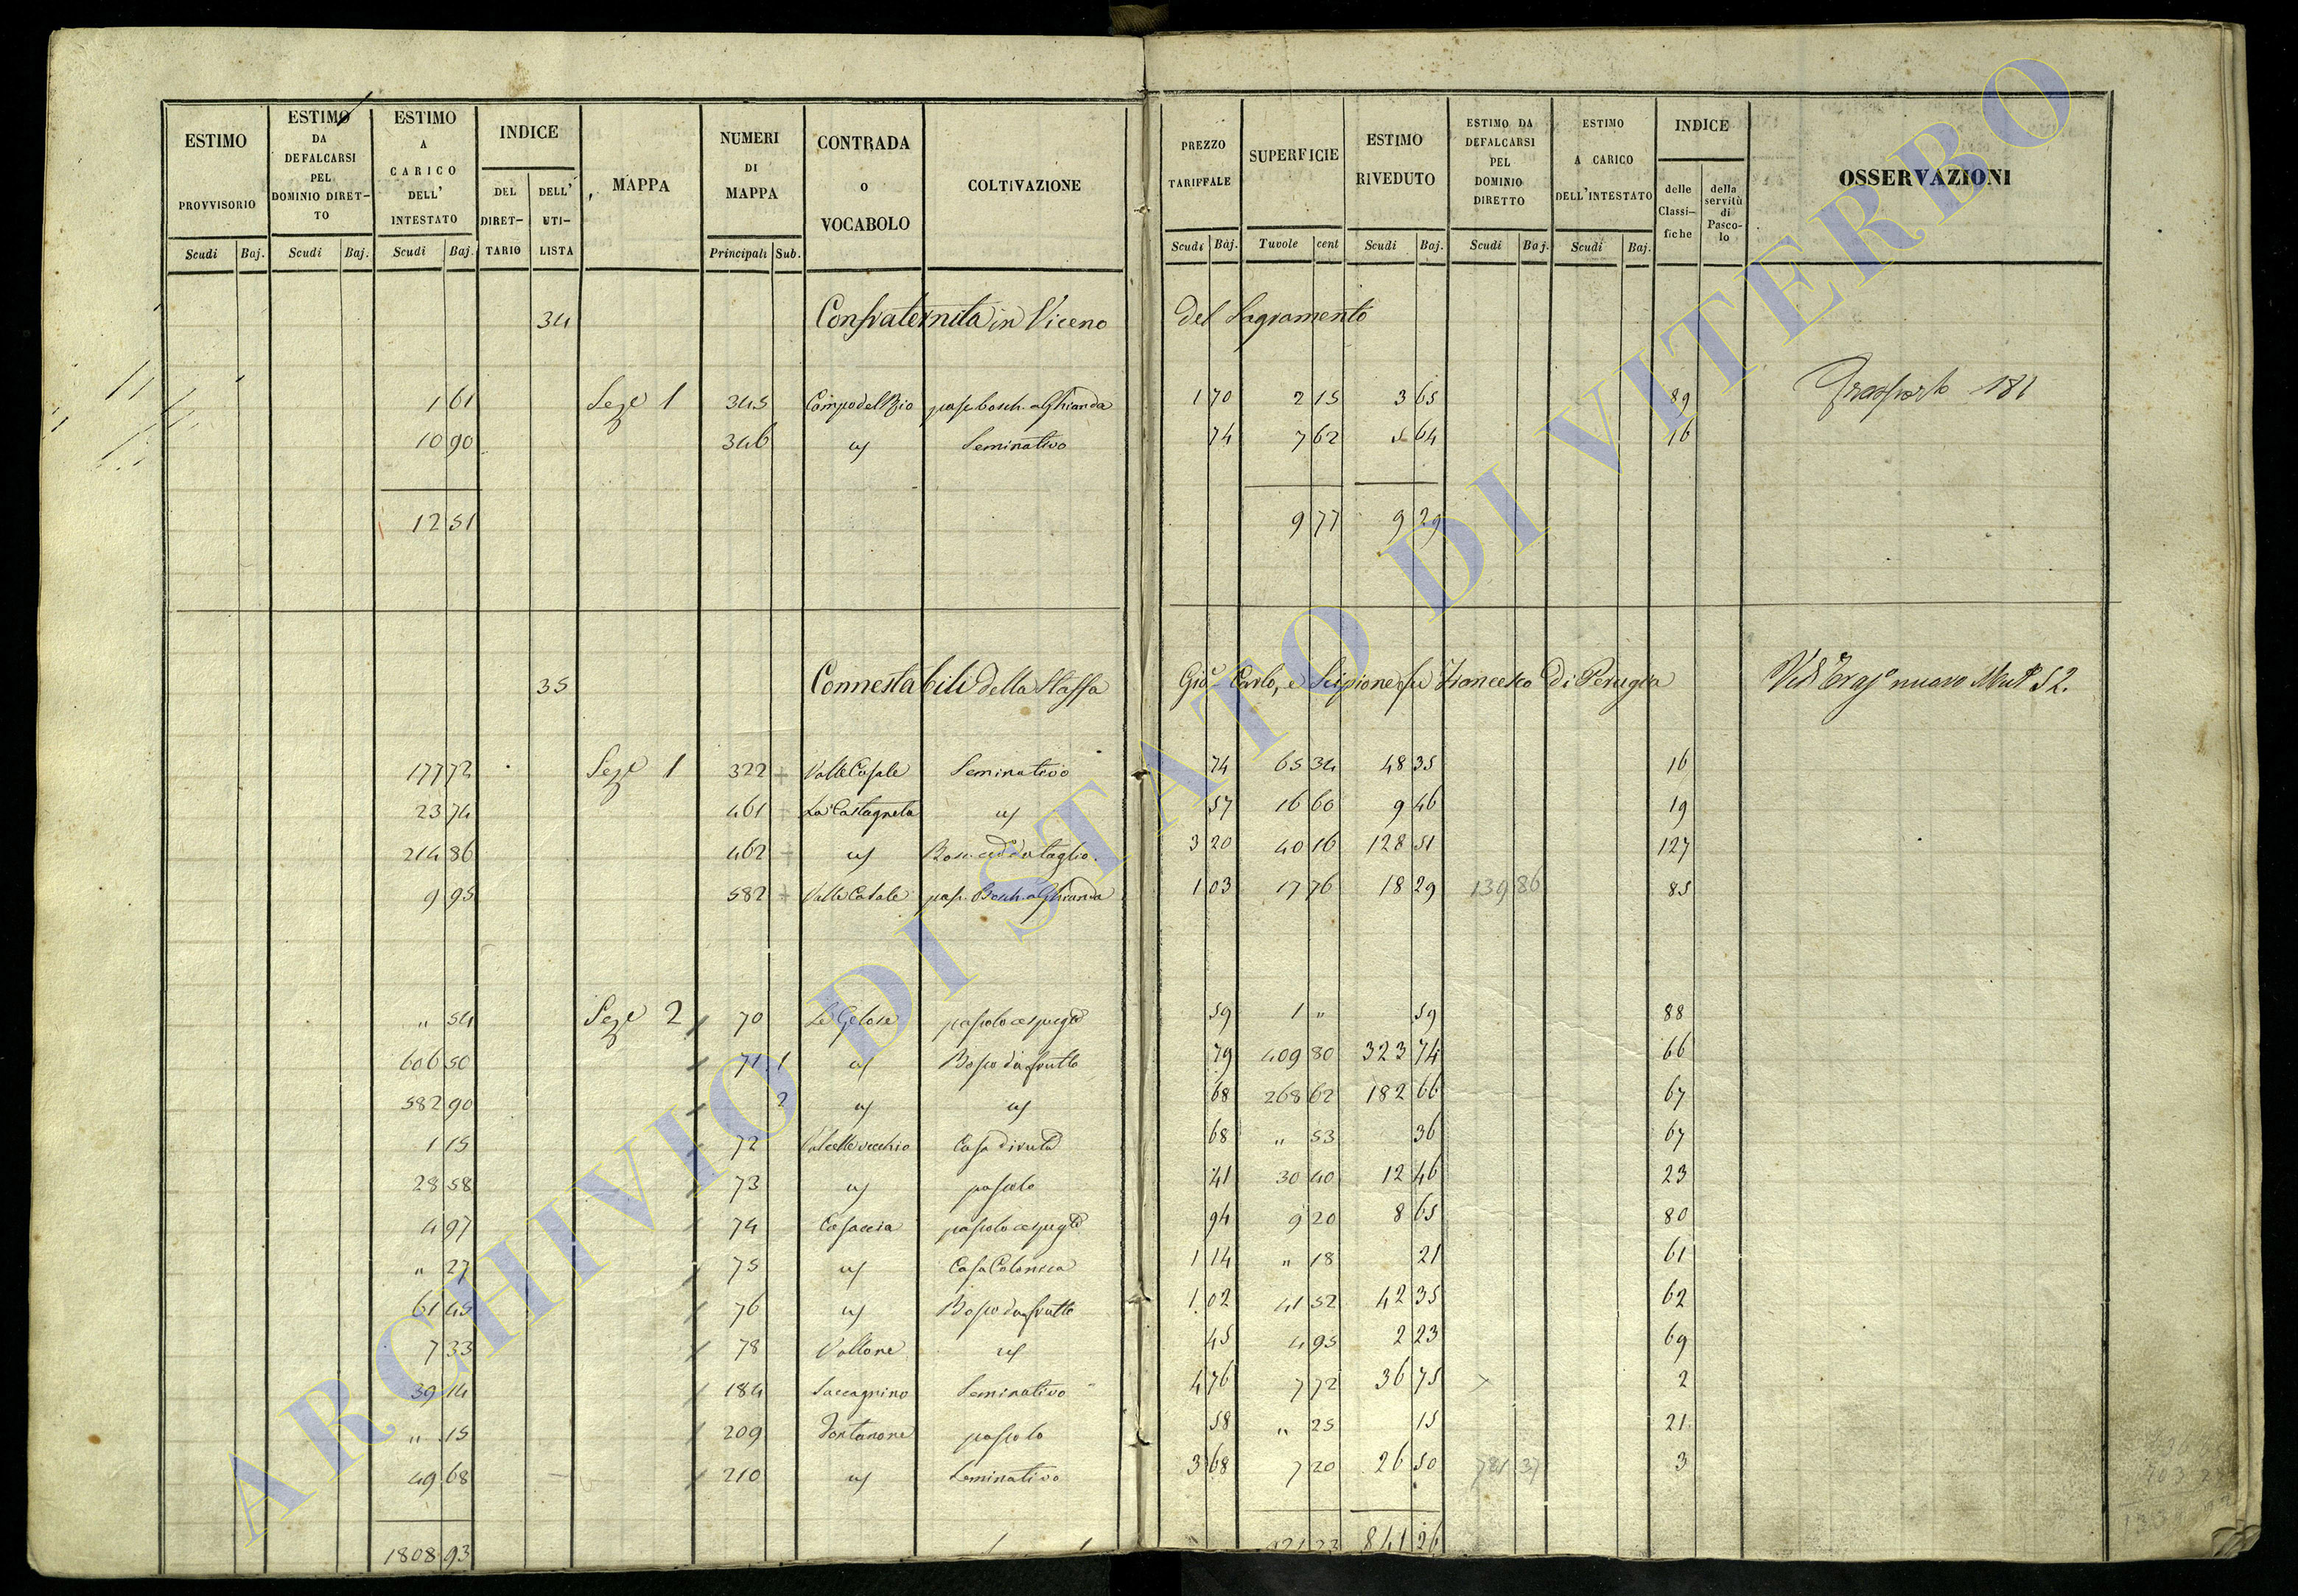 ESTIMO PROVVISORIO Scudi Baj.
ESTIMO DA DEFALCARSI PEL DOMINIO DIRETTO Scudi Baj.
ESTIMO A CARICO DELL' INTESTATO Scudi Baj.
INDICE DEL DIRETTARIO DELL' UTILISTA
MAPPA
NUMERI DI MAPPA Principali Sub.
CONTRADA O VOCABOLO
COLTIVAZIONE
PREZZO TARIFFALE Scudi Baj.
SUPERFICIE Tavole cent
ESTIMO RIVEDUTO Scudi Baj.
ESTIMO DA DEFALCARSI PEL DOMINIO DIRETTO Scudi Baj.
ESTIMO A CARICO DELL'INTESTATO Scudi Baj.
INDICE delle Classifiche della servitù di Pascolo
OSSERVAZIONI
34 Confraternita in Viceno del Sagramento
1 61 Seze 1 345 Campo del Bio pasc. bosch. a Ghianda 1 70 2 15 3 65 89 Trasporto 181
10 90 346 Seminativo 74 7 62 5 64 16
12 51 9 77 9 29
35 Connestabili della Staffa Gio Carlo, e Scipione fu Francesco di Perugia nuovo 52.
177 72 Seze 1 322 Valle Casale Seminativo 74 65 34 48 35 16
23 74 461 La Castagneta 57 16 60 9 46 19
214 86 462 Bosc. ced. da taglio 3 20 40 16 128 51 127
9 95 582 Valle Casale pas. Bosch. a Ghianda 1 03 17 76 18 29 139 86 85
" 54 Seze 2 70 Le Gelose pascolo cespugto 59 1 " 59 88
606 50 71 1 Bosco da frutto 79 409 80 323 74 66
582 90 2 68 268 62 182 66 67
1 15 72 vecchio Casa diruta 68 " 53 36 67
28 58 73 pascolo 41 30 40 12 46 23
4 97 74 Casaccia pascolo cespugto 94 9 20 8 65 80
" 27 75 Casa Colonica 1 14 " 18 21 61
61 45 76 Bosco da frutto 1 02 41 52 42 35 62
7 33 78 Vallone 45 4 95 2 23 69
39 14 184 Saccagnino Seminativo 4 76 7 72 36 75 2
" 15 209 Fontanone pascolo 58 " 25 15 21
49 68 210 Seminativo 3 68 7 20 26 50 781 37 3
1808 93 921 23 841 26
ARCHIVIO DI STATO DI VITERBO